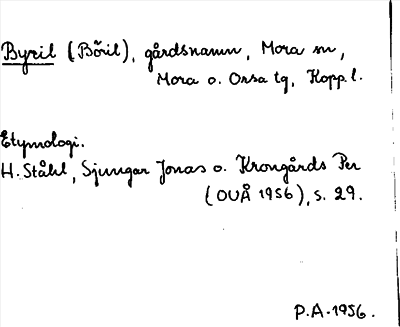 Byril (Bö̆ril), gårdsnamn, Mora sn,
Mora o. Orsa tg, Kopp. l.
Etymologi.
H. Ståhl, Sjungar Jonas o. Krongårds Per
(OUÅ 1956), s. 29.
P.A. 1956.